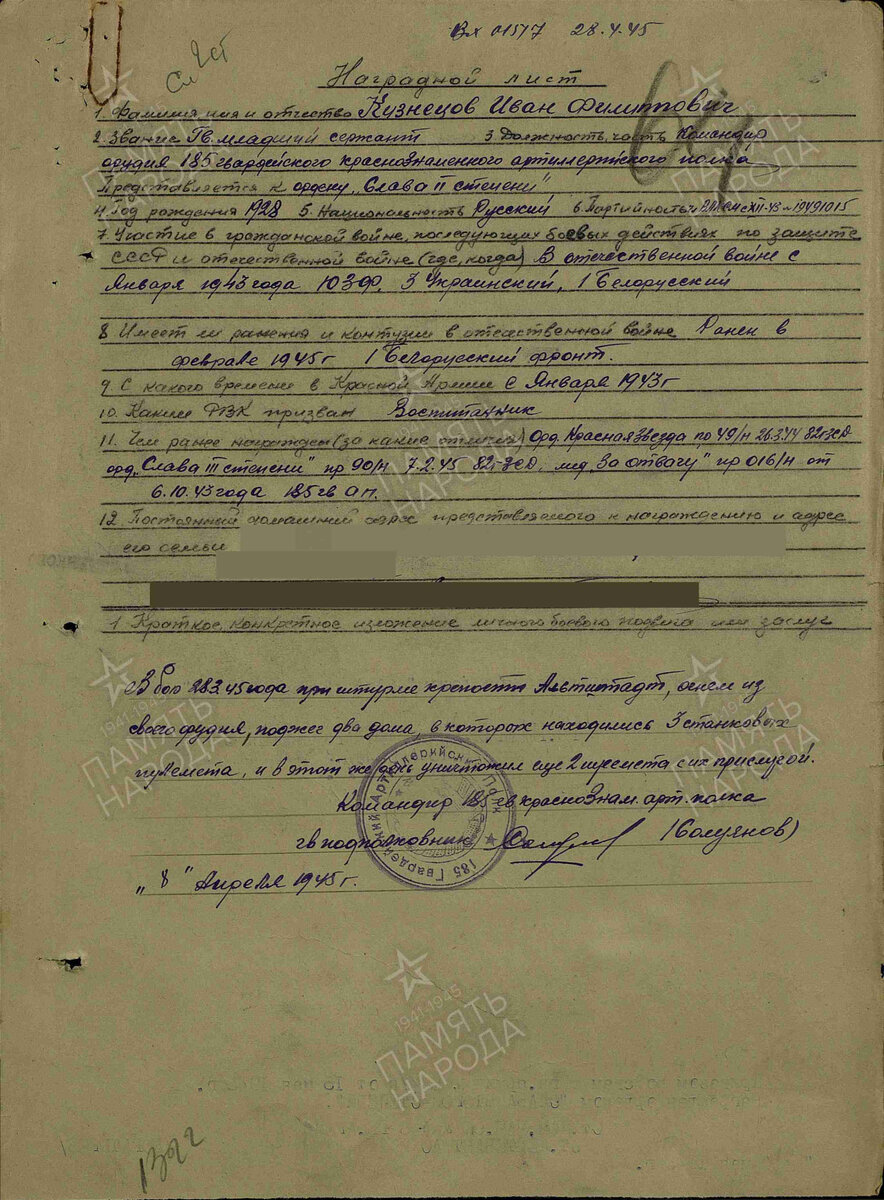 Вх 01517 28.4.45
Наградной лист
1. Фамилия, имя и отчество Кузнецов Иван Филиппович
2. Звание Гв. младший сержант 3. Должность, часть Командир
орудия 185 гвардейского краснознаменного артиллерийского полка
Представляется к ордену „Слава II степени"
4. Год рождения 1928 5. Национальность Русский 6. Партийность ВЛКСМ с XII-43 № 19491015
7. Участие в гражданской войне, последующих боевых действиях по защите
СССР и отечественной войне (где, когда) В отечественной войне с
Января 1943 года ЮЗФ, 3 Украинский, 1 Белорусский
8 Имеет ли ранения и контузии в отечественной войне Ранен в
феврале 1945 г 1 Белорусский фронт.
9. С какого времени в Красной Армии с Января 1943 г
10. Каким РВК призван Воспитанник
11. Чем ранее награжден (за какие отличия) Орд. Красная Звезда пр 49/н 26.3.44 82 гв СД
орд. „Слава III степени" пр 90/н 7.2.45 82 гв СД, мед. „За отвагу" пр 016/н от
6.10.43 года 185 гв ап.
12. Постоянный домашний адрес представляемого к награждению и адрес
его семьи
1. Краткое, конкретное изложение личного боевого подвига или заслуг
В бою 28.3.45 года при штурме крепости Альтштадт, огнем из
своего орудия, поджег два дома, в которых находились 3 станковых
пулемета, и в этот же день уничтожил еще 2 пулемета с их прислугой.
Командир 185 гв краснознам. арт. полка
гв подполковник (Солуянов)
„8" Апреля 1945 г.
185 Гвардейский Артиллерийский Полк
1941-1945
ПАМЯТЬ
НАРОДА